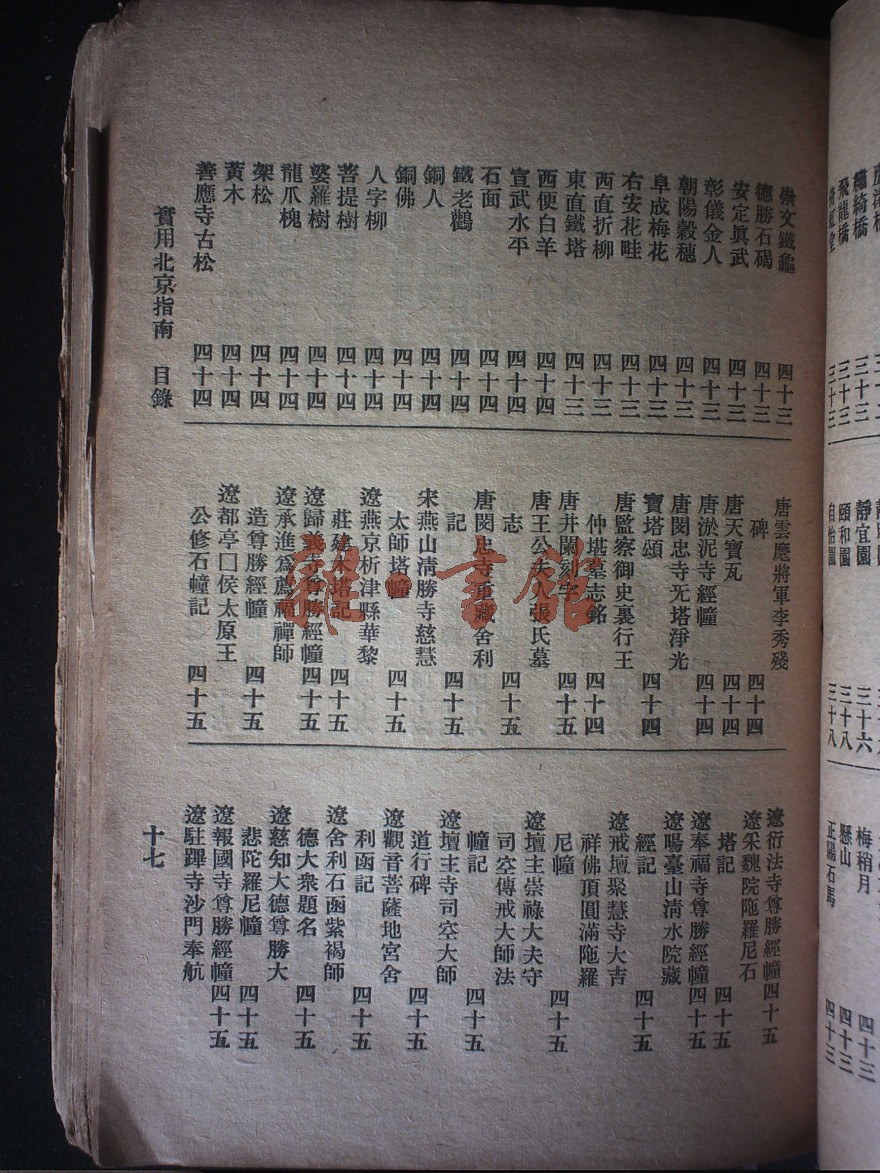 繡綺橋 三十三
飛龍橋 三十三
三十三
靜宜園 三十六
頤和園 三十八
自怡園 三十八
梅稍月 四十三
懸山 四十三
正陽石馬 四十三
崇文鐵龜 四十三
德勝石碣 四十三
安定眞武 四十三
彰儀金人 四十三
朝陽穀穗 四十三
阜成梅花 四十三
右安花畦 四十三
西直折柳 四十三
東直鐵塔 四十三
西便白羊 四十四
宣武水平 四十四
石面 四十四
鐵老鸛 四十四
銅人 四十四
銅佛 四十四
人字柳 四十四
菩提樹 四十四
婆羅樹 四十四
龍爪槐 四十四
架松 四十四
黃木 四十四
善應寺古松 四十四
唐雲麾將軍李秀殘
碑 四十四
唐天寶瓦 四十四
唐淤泥寺經幢 四十四
唐閔忠寺旡塔淨光
寶塔頌 四十四
唐監察御史裏行王
仲堪墓志銘 四十四
唐井闌刻字 四十五
唐王公夫人張氏墓
志 四十五
唐閔忠寺重藏舍利
記 四十五
宋燕山清勝寺慈慧
太師塔幢 四十五
遼燕京析津縣華黎
莊建木塔記 四十五
遼歸義寺尊勝經幢 四十五
遼承進爲薦福禪師
造尊勝經幢 四十五
遼都亭囗侯太原王
公修石幢記 四十五
遼衍法寺尊勝經幢 四十五
遼采魏院陁羅尼石
塔記 四十五
遼奉福寺尊勝經幢 四十五
遼暘臺山清水院藏
經記 四十五
遼戒壇聚慧寺大吉
祥佛頂圓滿陁羅
尼幢 四十五
遼壇主崇祿大夫守
司空傳戒大師法
幢記 四十五
遼壇主寺司空大師
道行碑 四十五
遼觀音菩薩地宮舍
利函記 四十五
遼舍利石函紫褐師
德大衆題名 四十五
遼慈知大德尊勝大
悲陀羅尼幢 四十五
遼報國寺尊勝經幢 四十五
遼駐蹕寺沙門奉航
實用北京指南 目錄
十七
雜·書館